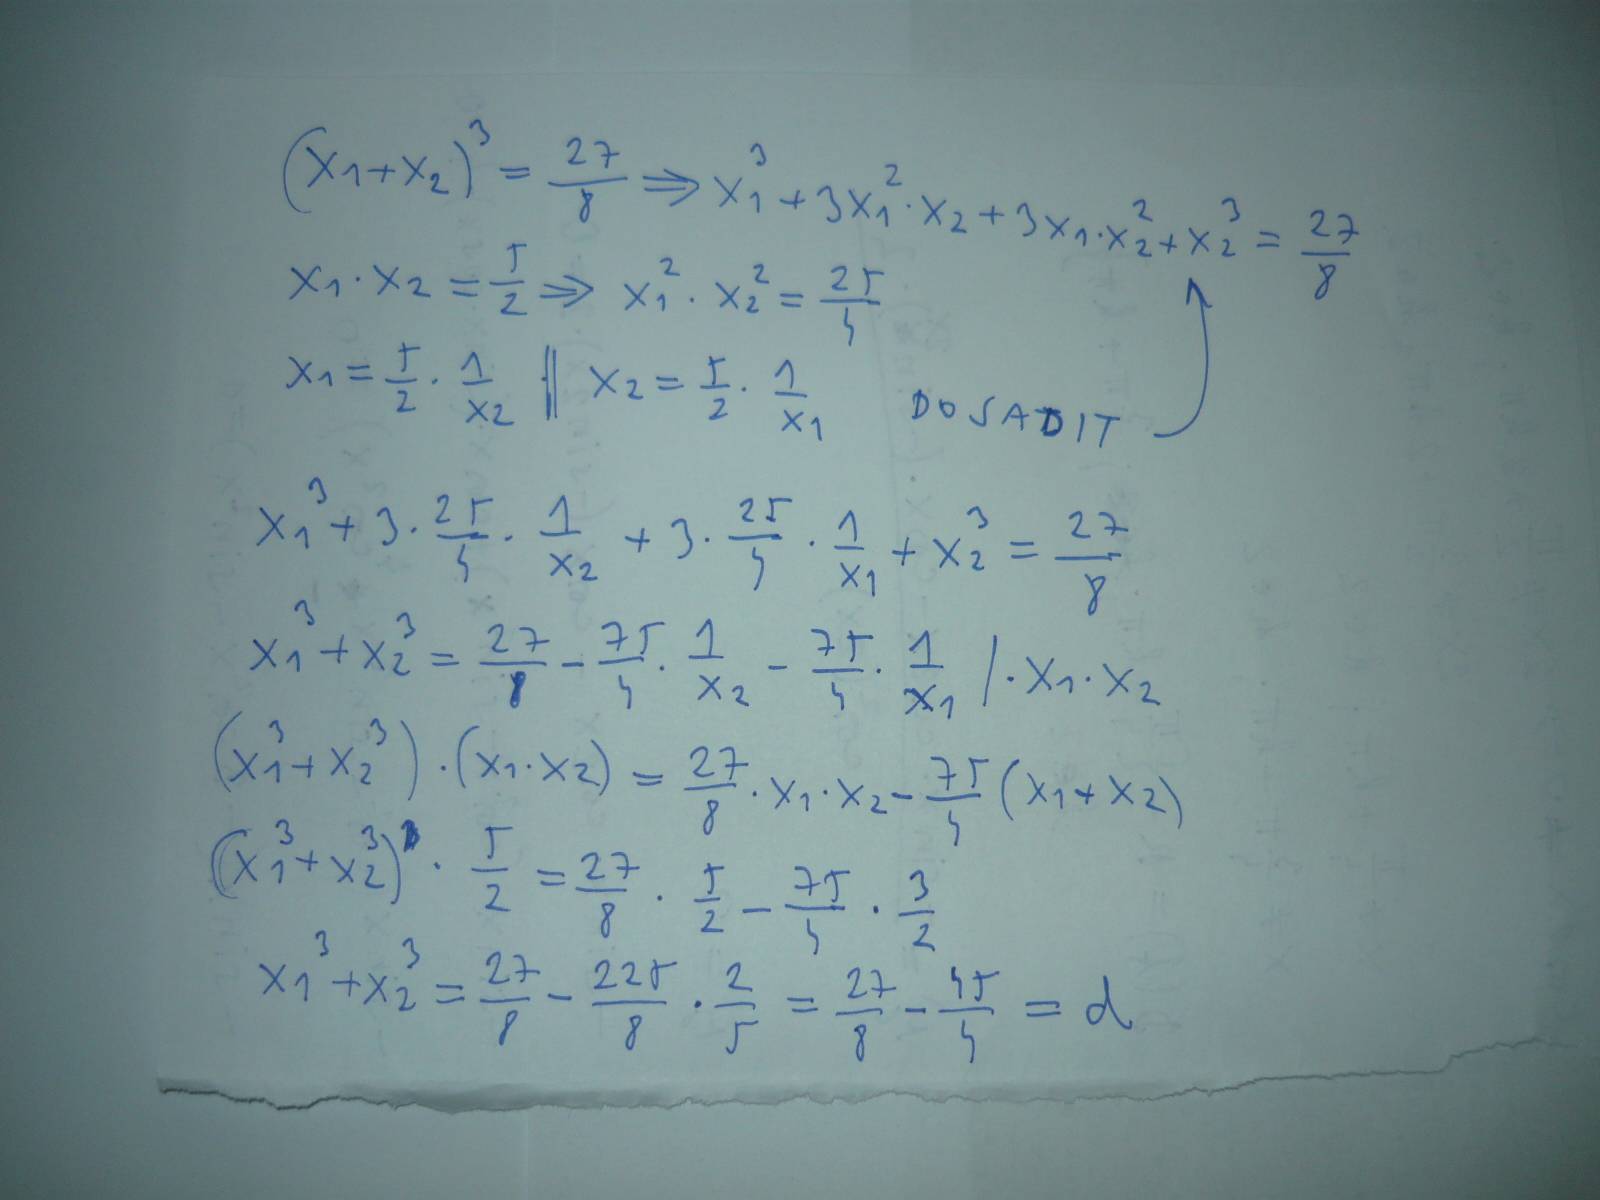 (x₁+x₂)³ = 27/8 ⇒ x₁³ + 3x₁²·x₂ + 3x₁·x₂² + x₂³ = 27/8
x₁·x₂ = 5/2 ⇒ x₁²·x₂² = 25/4
x₁ = 5/2 · 1/x₂ || x₂ = 5/2 · 1/x₁ DOSADIT
x₁³ + 3·25/4·1/x₂ + 3·25/4·1/x₁ + x₂³ = 27/8
x₁³ + x₂³ = 27/8 - 75/4·1/x₂ - 75/4·1/x₁ /·x₁·x₂
(x₁³+x₂³)·(x₁·x₂) = 27/8·x₁·x₂ - 75/4(x₁+x₂)
(x₁³+x₂³)·5/2 = 27/8·5/2 - 75/4·3/2
x₁³+x₂³ = 27/8 - 225/8·2/5 = 27/8 - 45/4 = d